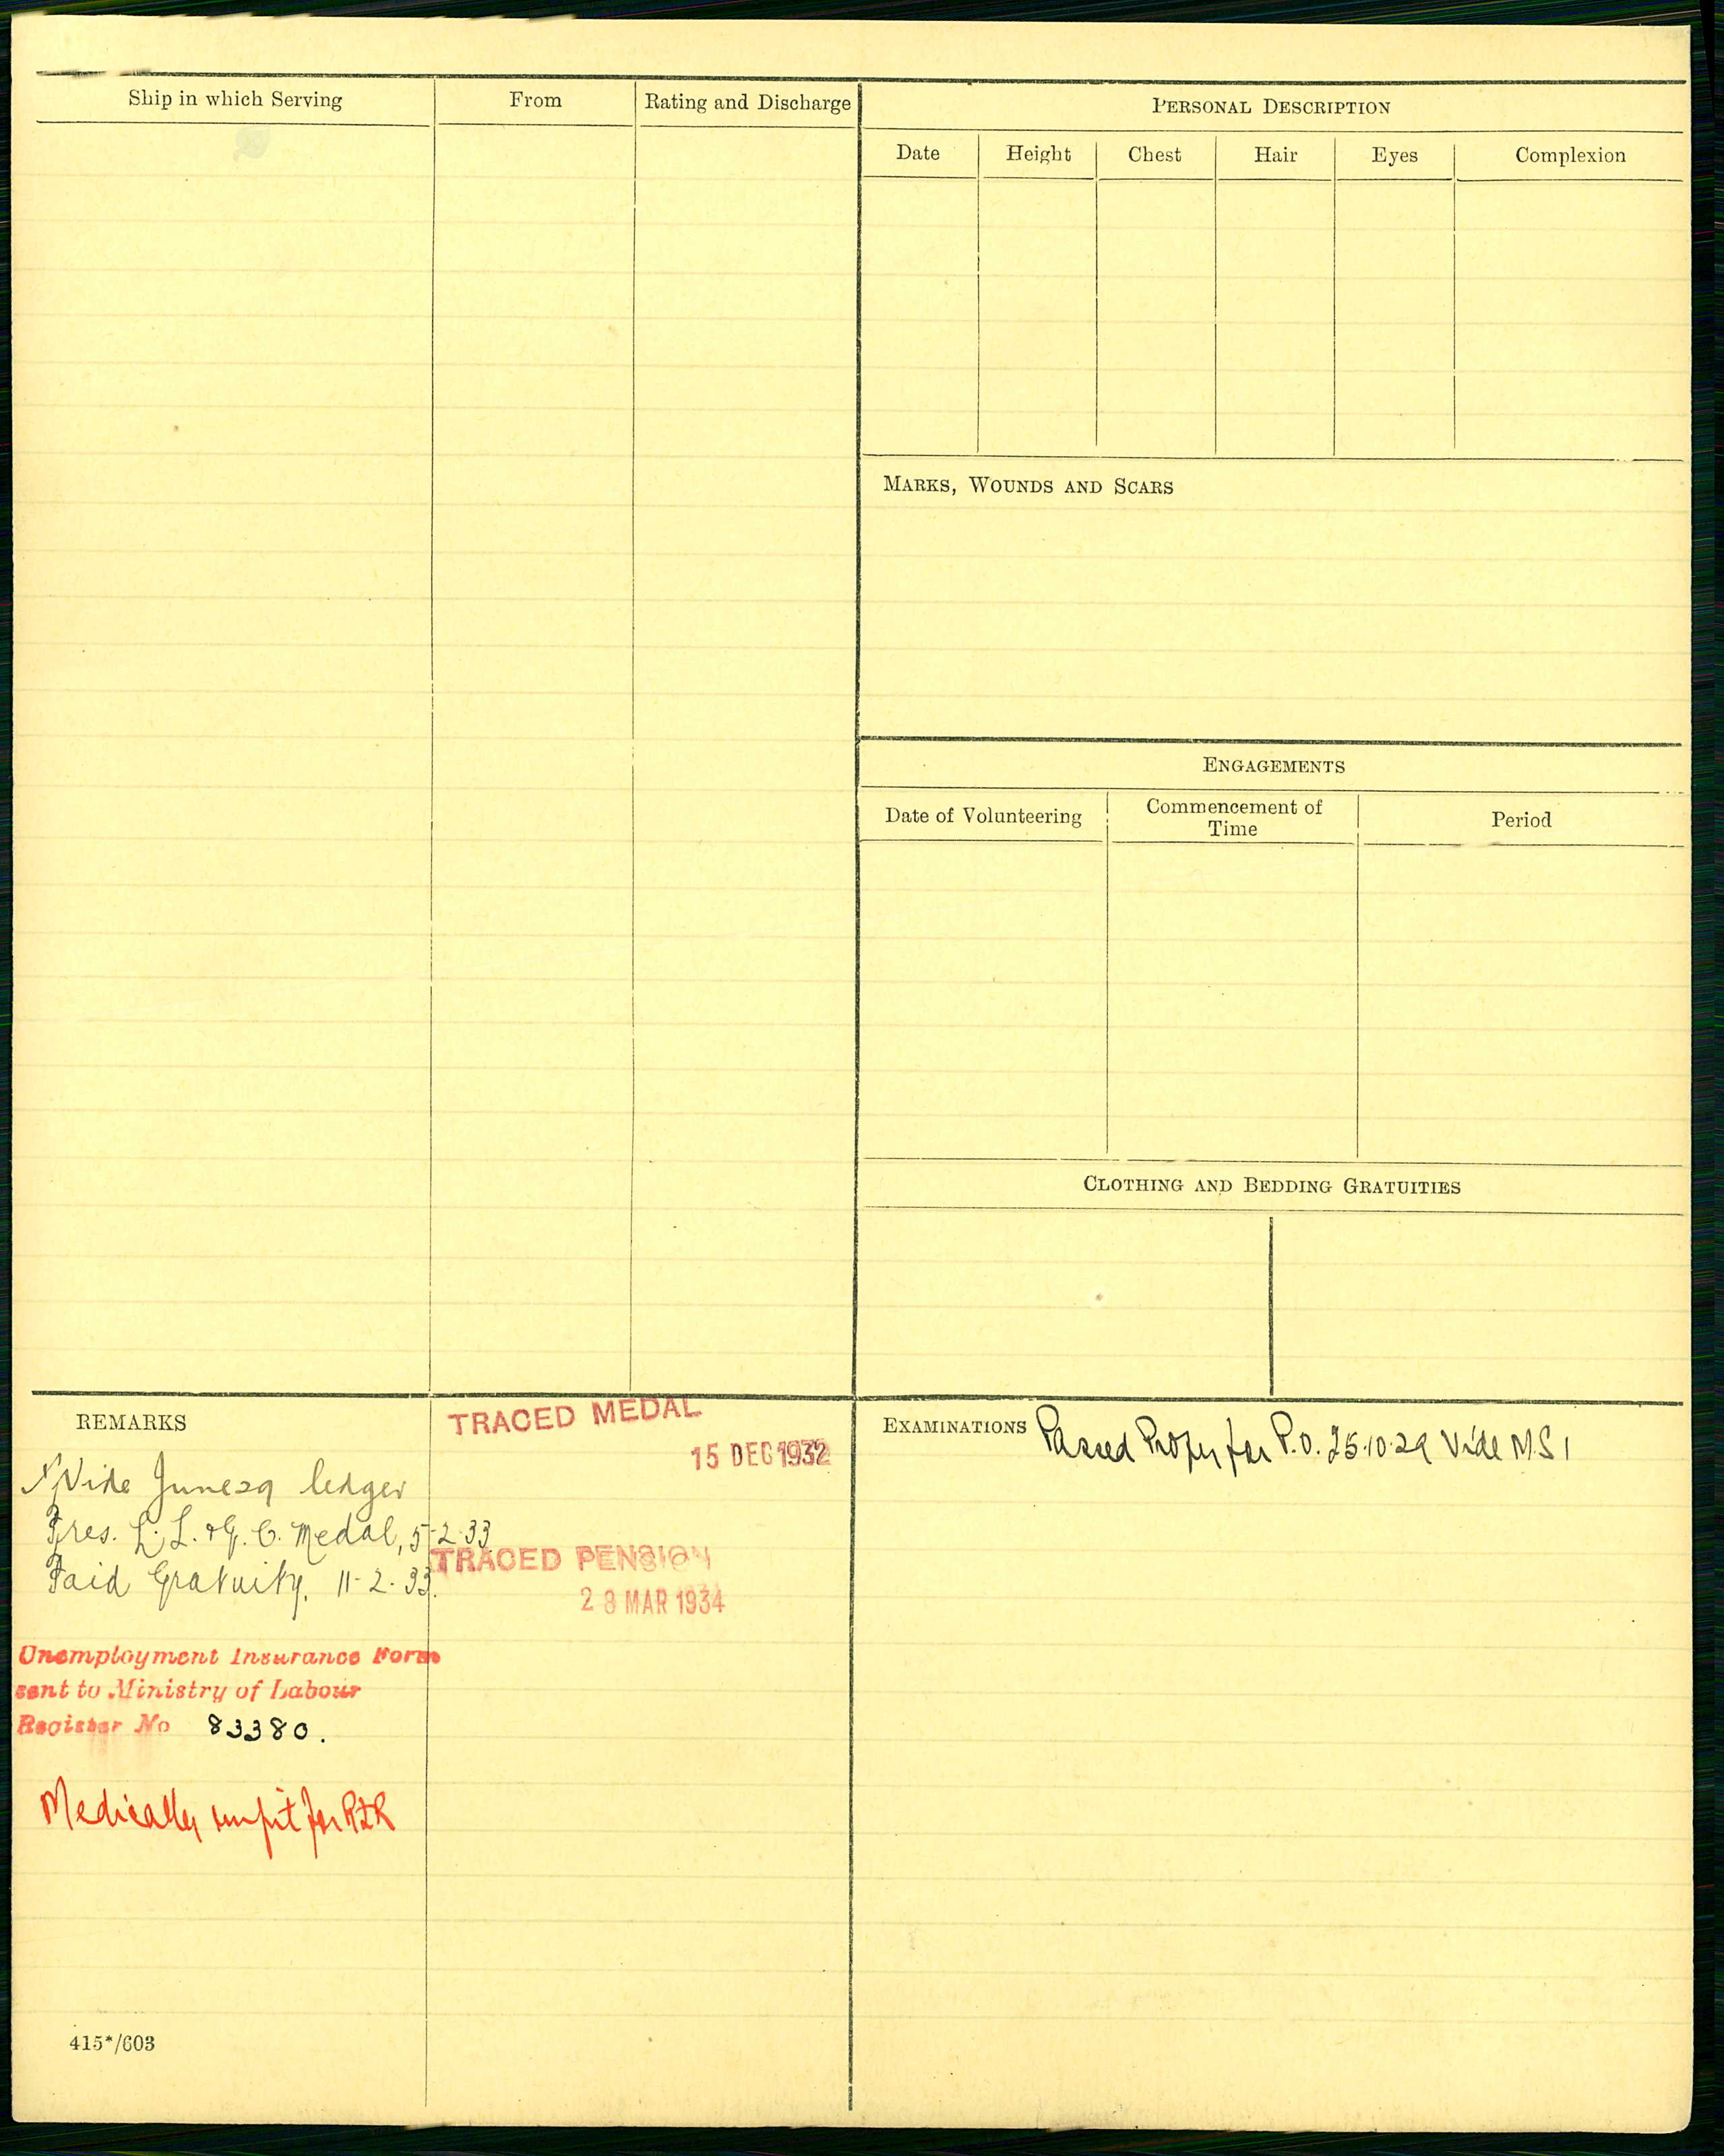 Ship in which Serving
From
Rating and Discharge
PERSONAL DESCRIPTION
Date
Height
Chest
Hair
Eyes
Complexion
MARKS, WOUNDS AND SCARS
ENGAGEMENTS
Date of Volunteering
Commencement of
Time
Period
CLOTHING AND BEDDING GRATUITIES
REMARKS
TRACED MEDAL
15 DEC 1932
Vide June 29 ledger
Tres. L.S. & G.C. Medal, 5-2-33
Paid Gratuity. 11-2-33.
TRACED PENSION
MAR 1934
Unemployment Insurance Form
sent to Ministry of Labour
Register No 83380.
Medically unfit for
415*/603
EXAMINATIONS
Passed for P.O. 25.10.29 Vide M.S 1